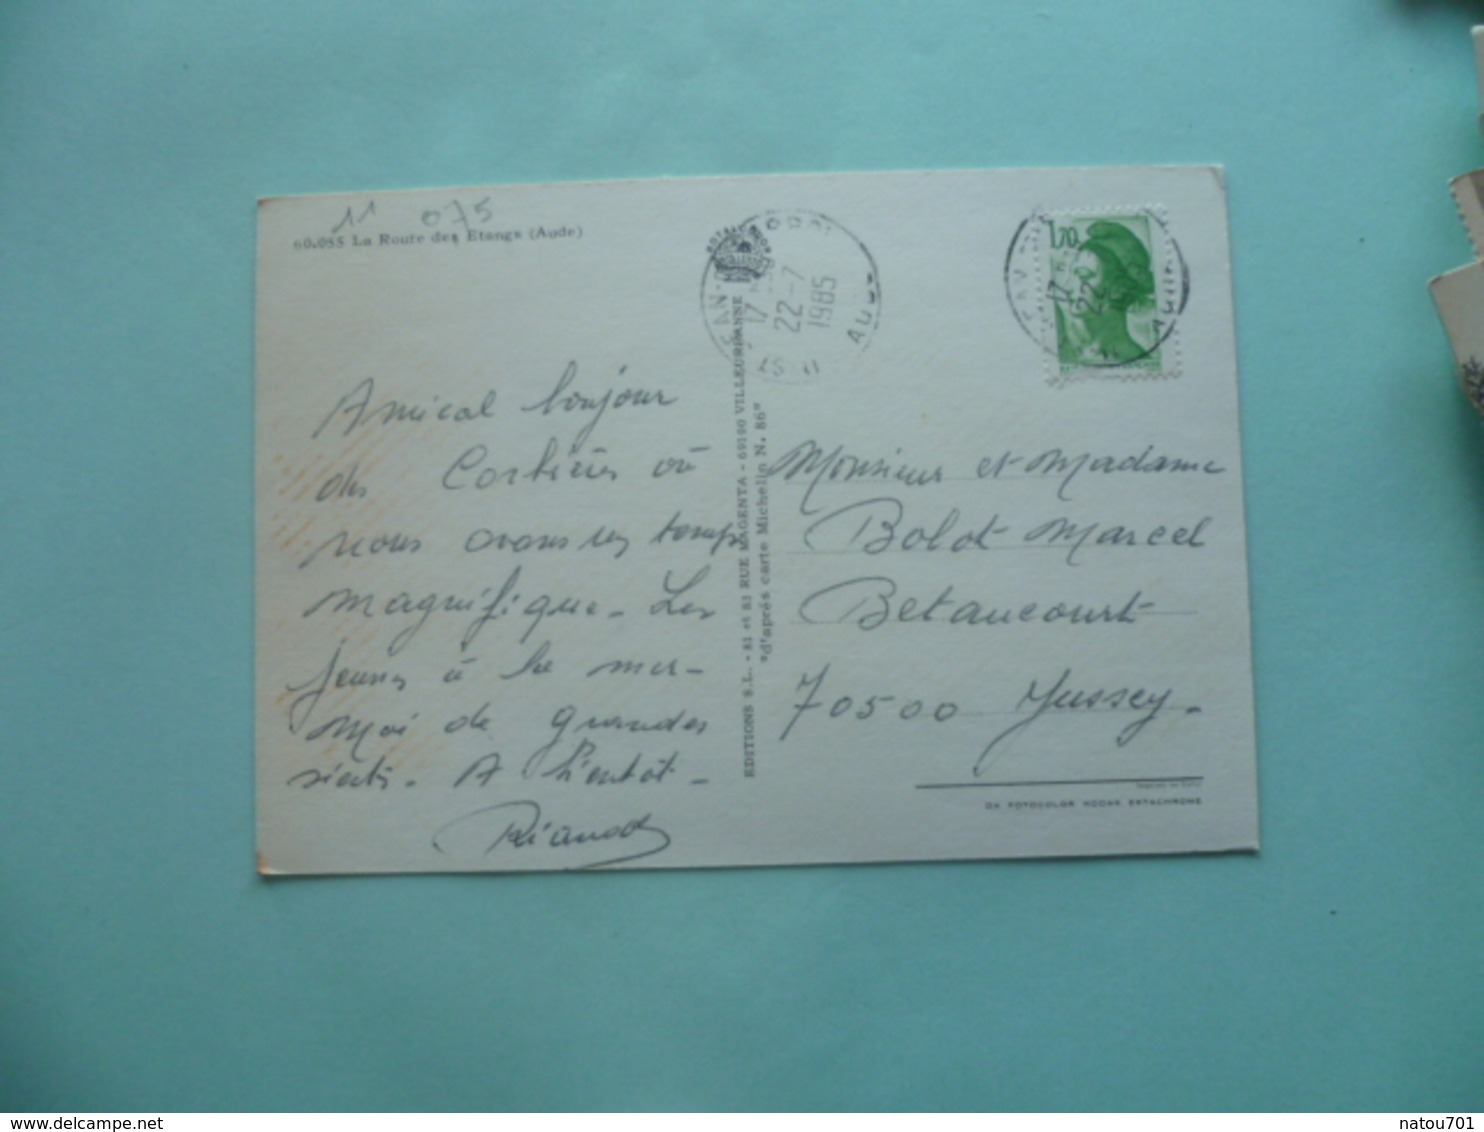 11 075
60.055 La Route des Etangs (Aude)
17
22-7
1985
1,70
17
22
Amical bonjour
des Corbières où
nous avons un temps
magnifique. Les
jeunes à la mer-
Moi de grandes
siestes. A bientôt-
EDITIONS S.L. - 81 et 83 RUE MAGENTA - 69100 VILLEURBANNE
"d'après carte Michelin N. 86"
Monsieur et Madame
Bolot Marcel
Betaucourt
70500 Jussey.
DA FOTOCOLOR KODAK EKTACHROME
natou701